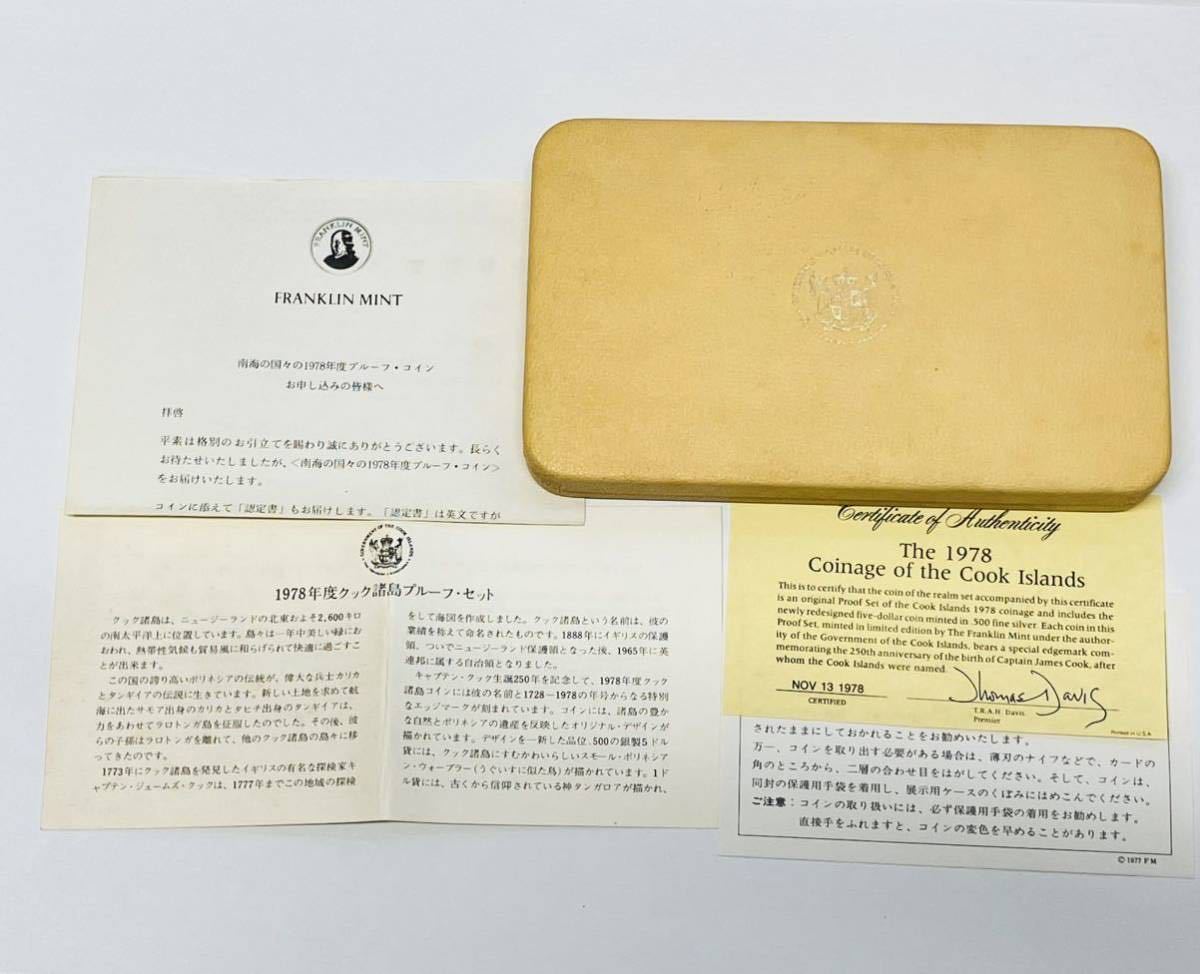 FRANKLIN MINT
FRANKLIN MINT
南海の国々の1978年度プルーフ・コイン
お申し込みの皆様へ
拝啓
平素は格別のお引立てを賜わり誠にありがとうございます。長らく
お待たせいたしましたが、<南海の国々の1978年度プルーフ・コイン>
をお届けいたします。
コインに添えて「認定書」もお届けします。「認定書」は英文ですが
GOVERNMENT OF THE COOK ISLANDS
1978年度クック諸島プルーフ・セット
クック諸島は、ニュージーランドの北東およそ2,600キロ
の南太平洋上に位置しています。島々は一年中美しい緑にお
おわれ、熱帯性気候も貿易風に和らげられて快適に過ごすこ
とが出来ます。
この国の誇り高いポリネシアの伝統が、偉大な兵士カリカ
とタンギイアの伝説に生きています。新しい土地を求めて航
海に出たサモア出身のカリカとタヒチ出身のタンギイアは、
力をあわせてラロトンガ島を征服したのでした。その後、彼
らの子孫はラロトンガを離れて、他のクック諸島の島々に移
ってきたのです。
1773年にクック諸島を発見したイギリスの有名な探検家キ
ャプテン・ジェームズ・クックは、1777年までこの地域の探検
をして海図を作成しました。クック諸島という名前は、彼の
業績を称えて命名されたものです。1888年にイギリスの保護
領、ついでニュージランド保護領となった後、1965年に英
連邦に属する自治領となりました。
キャプテン・クック生誕250年を記念して、1978年度クック
諸島コインには彼の名前と1728–1978の年号からなる特別
なエッジマークが刻まれています。コインには、諸島の豊か
な自然とポリネシアの遺産を反映したオリジナル・デザインが
描かれています。デザインを一新した品位.500の銀製5ドル
貨には、クック諸島にすむかわいらしいスモール・ポリネシア
ン・ウォーブラー(うぐいすに似た鳥)が描かれています。1ド
ル貨には、古くから信仰されている神タンガロアが描かれ、
Certificate of Authenticity
The 1978
Coinage of the Cook Islands
This is to certify that the coin of the realm set accompanied by this certificate
is an original Proof Set of the Cook Islands 1978 coinage and includes the
newly redesigned five-dollar coin minted in .500 fine silver. Each coin in this
Proof Set, minted in limited edition by The Franklin Mint under the author-
ity of the Government of the Cook Islands, bears a special edgemark com-
memorating the 250th anniversary of the birth of Captain James Cook, after
whom the Cook Islands were named.
NOV 13 1978
CERTIFIED
Thomas Davis
T.R.A.H. Davis
Premier
Printed in U.S.A.
されたままにしておかれることをお勧めいたします。
万一、コインを取り出す必要がある場合は、薄刃のナイフなどで、カードの
角のところから、二層の合わせ目をはがしてください。そして、コインは、
同封の保護用手袋を着用し、展示用ケースのくぼみにはめこんでください。
ご注意:コインの取り扱いには、必ず保護用手袋の着用をお勧めします。
直接手をふれますと、コインの変色を早めることがあります。
© 1977 FM